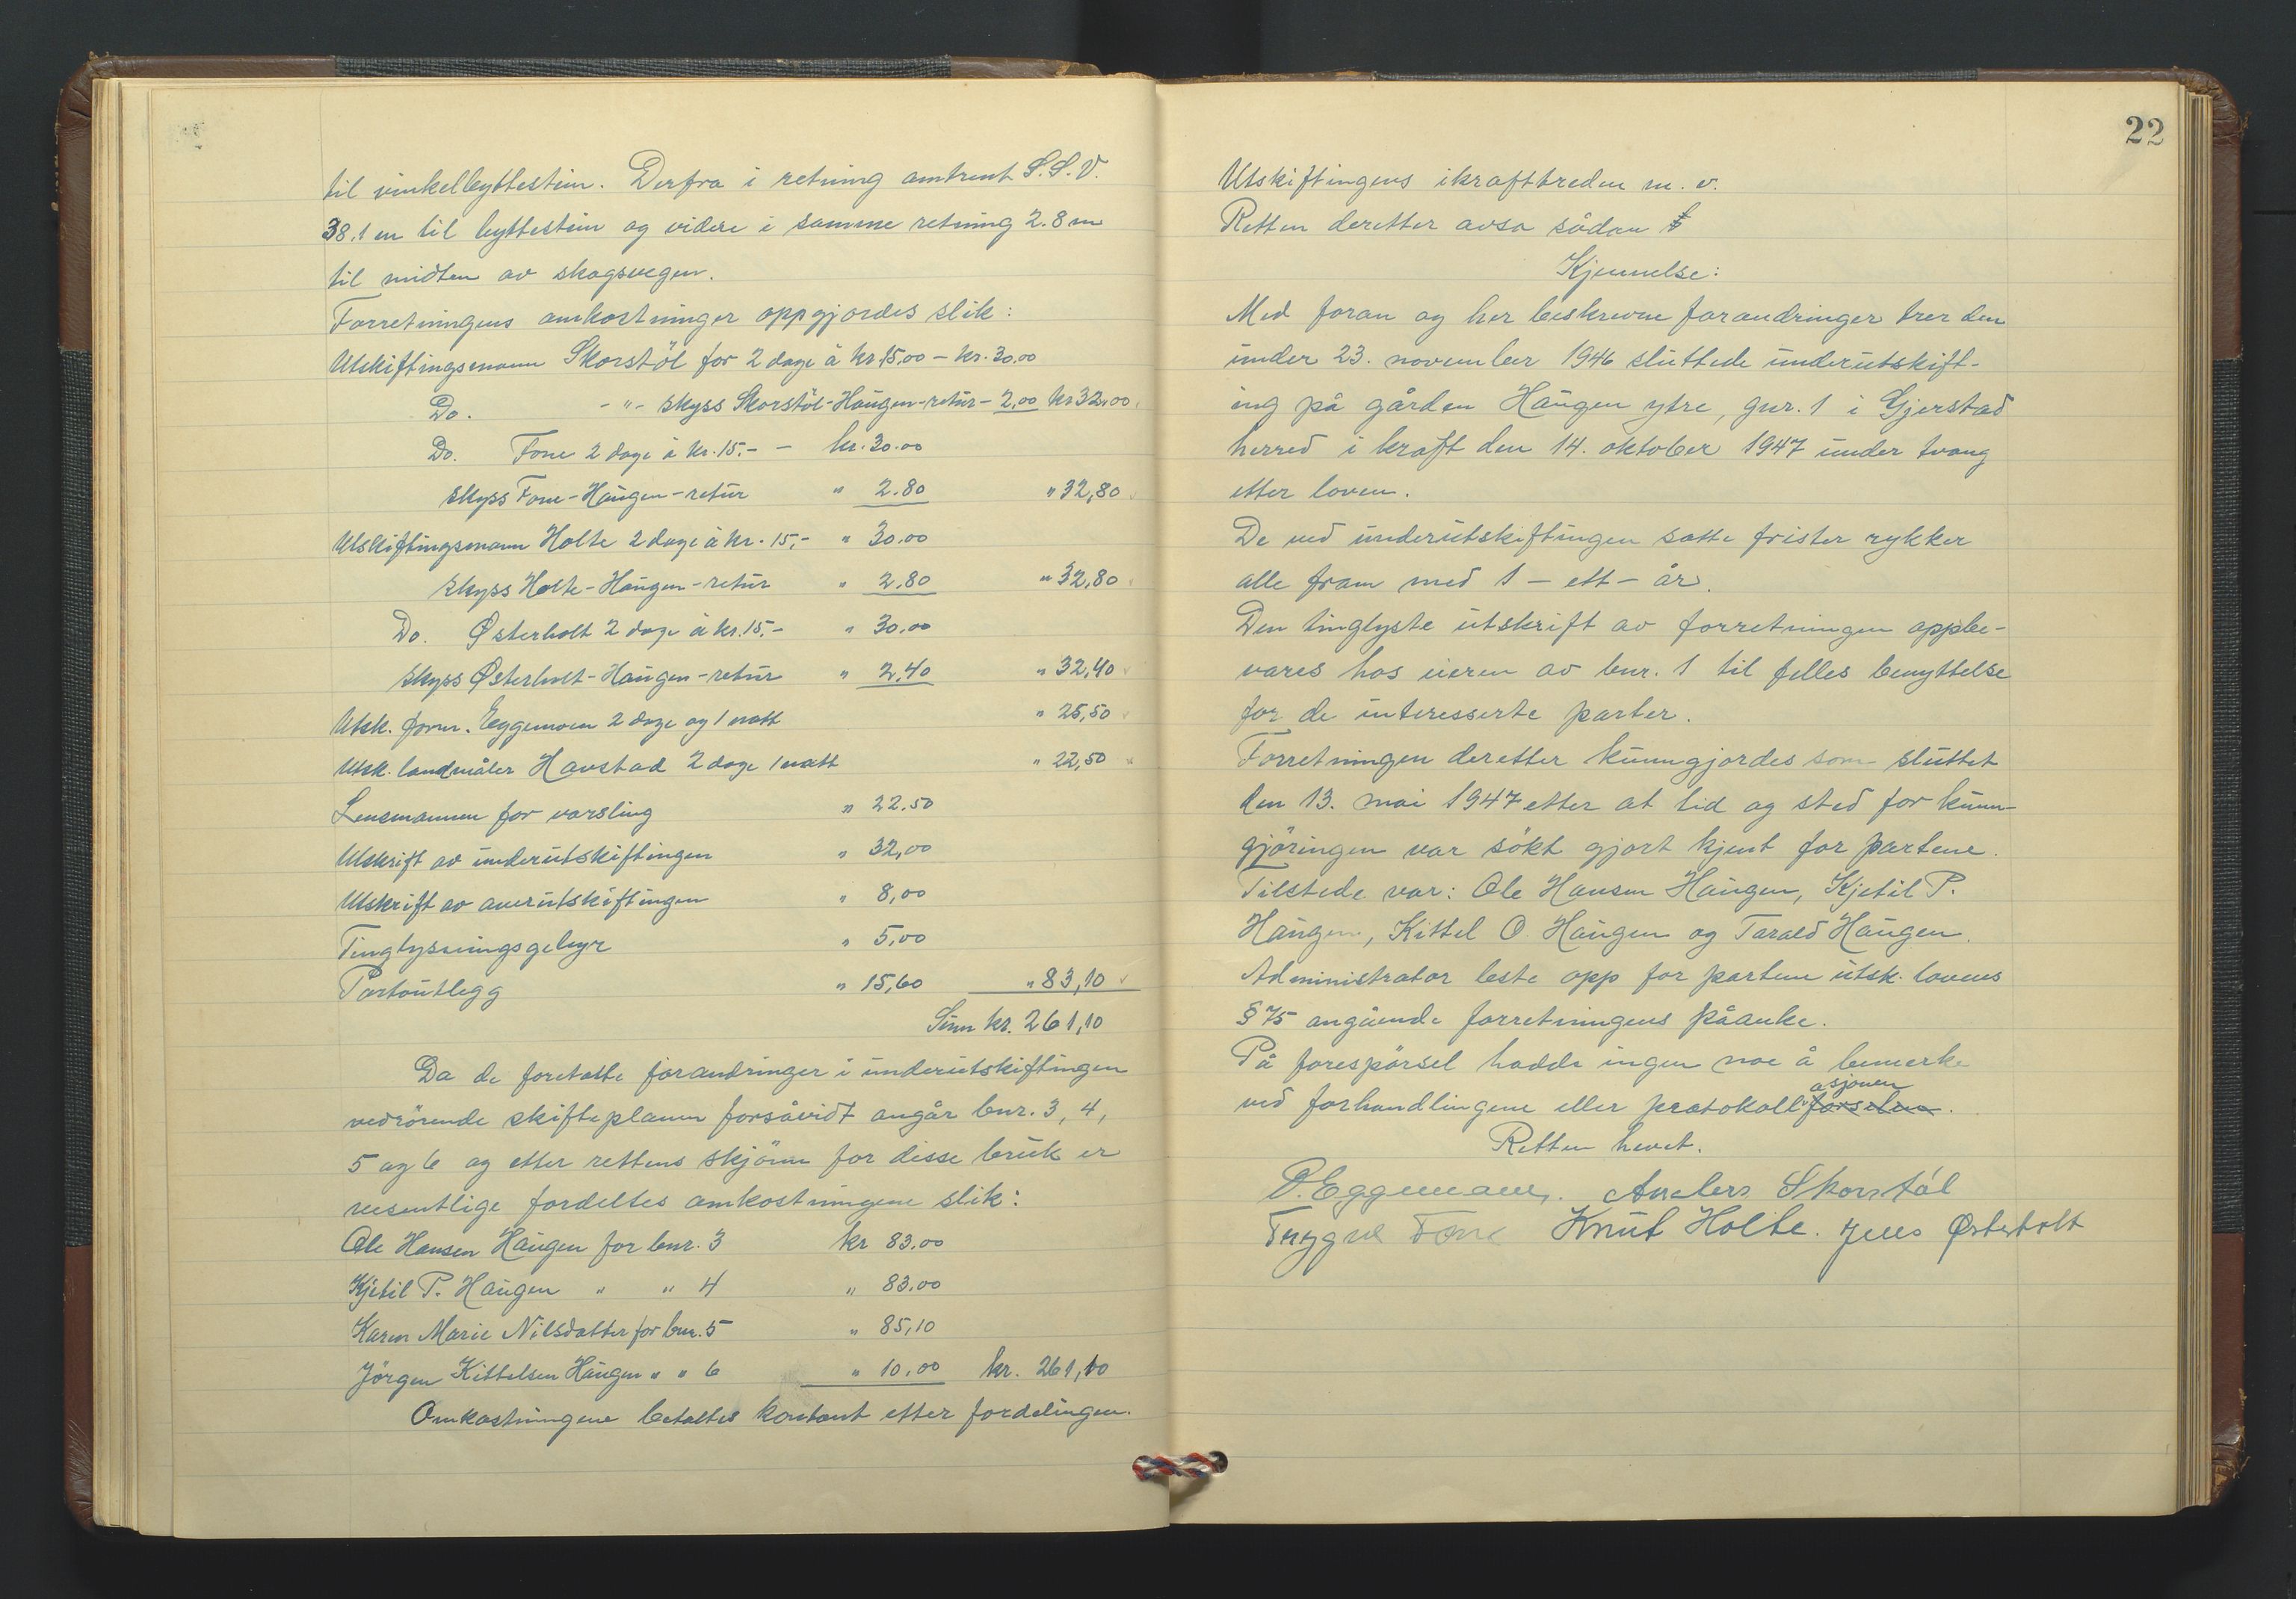 til vinkelbyttestein. Derfra i retning amtrent S.S.V.
38.1 m til byttestein og videre i samme retning 2.8 m
til midten av skogsvegen.
Forretningens omkostninger oppgjordes slik:
Utskiftingsmann Skorstöl for 2 dage à kr 15,00 – kr. 30,00
Do. - " - skyss Skorstöl-Haugen-retur - 2,00 kr 32,00
Do. Fone 2 dage à kr. 15.- - kr. 30.00
skyss Fone-Haugen-retur " 2.80 " 32,80
Utskiftingsmann Holte 2 dage à kr. 15,- " 30.00
skyss Holte-Haugen-retur " 2.80 " 32,80
Do. Østerholt 2 dage à kr. 15,- " 30,00
skyss Østerholt-Haugen-retur " 2,40 " 32,40
Utsk. form. Eggemoen 2 dage og 1 natt " 25,50
Utsk. landmåler Havstad 2 dage 1 natt " 22,50
Lensmannen for varsling " 22.50
Utskrift av underutskiftingen " 32,00
Utskrift av overutskiftingen " 8,00
Tinglysningsgebyr " 5,00
Portoutlegg " 15,60 " 83,10
Sum kr. 261,10
Da de foretatte forandringer i underutskiftingen
vedrörende skifteplanen forsåvidt angår bnr. 3, 4,
5 og 6 og etter rettens skjönn for disse bruk er
vesentlige fordeltes omkostningene slik:
Ole Hansen Haugen for bnr. 3 kr 83.00
Kjetil P. Haugen " " 4 " 83.00
Karen Marie Nilsdatter for bnr. 5 " 85,10
Jörgen Kittelsen Haugen " " 6 " 10.00 kr. 261,10
Omkostningene betaltes kontant etter fordelingen.
22
Utskiftingens ikrafttreden m. v.
Retten deretter avsa sådan
Kjennelse:
Med foran og her beskrevne forandringer trer den
under 23. november 1946 sluttede underutskift-
ing på gården Haugen ytre, gnr. 1 i Gjerstad
herred i kraft den 14. oktober 1947 under tvang
etter loven.
De ved underutskiftingen satte frister rykker
alle fram med 1 – ett – år.
Den tinglyste utskrift av forretningen oppbe-
vares hos eieren av bnr. 1 til felles benyttelse
for de interesserte parter.
Forretningen deretter kunngjordes som sluttet
den 13. mai 1947 etter at tid og sted for kunn-
gjöringen var sökt gjort kjent for partene.
Tilstede var: Ole Hansen Haugen, Kjetil P.
Haugen, Kittel O. Haugen og Tarald Haugen.
Administrator leste opp for partene utsk. lovens
§ 75 angående forretningens påanke.
På forespörsel hadde ingen noe å bemerke
asjonen
ved forhandlingene eller protokoll förselen.
Retten hevet.
Anders Skorstöl
Tryggve Fone Knut Holte. Jens Østerholt